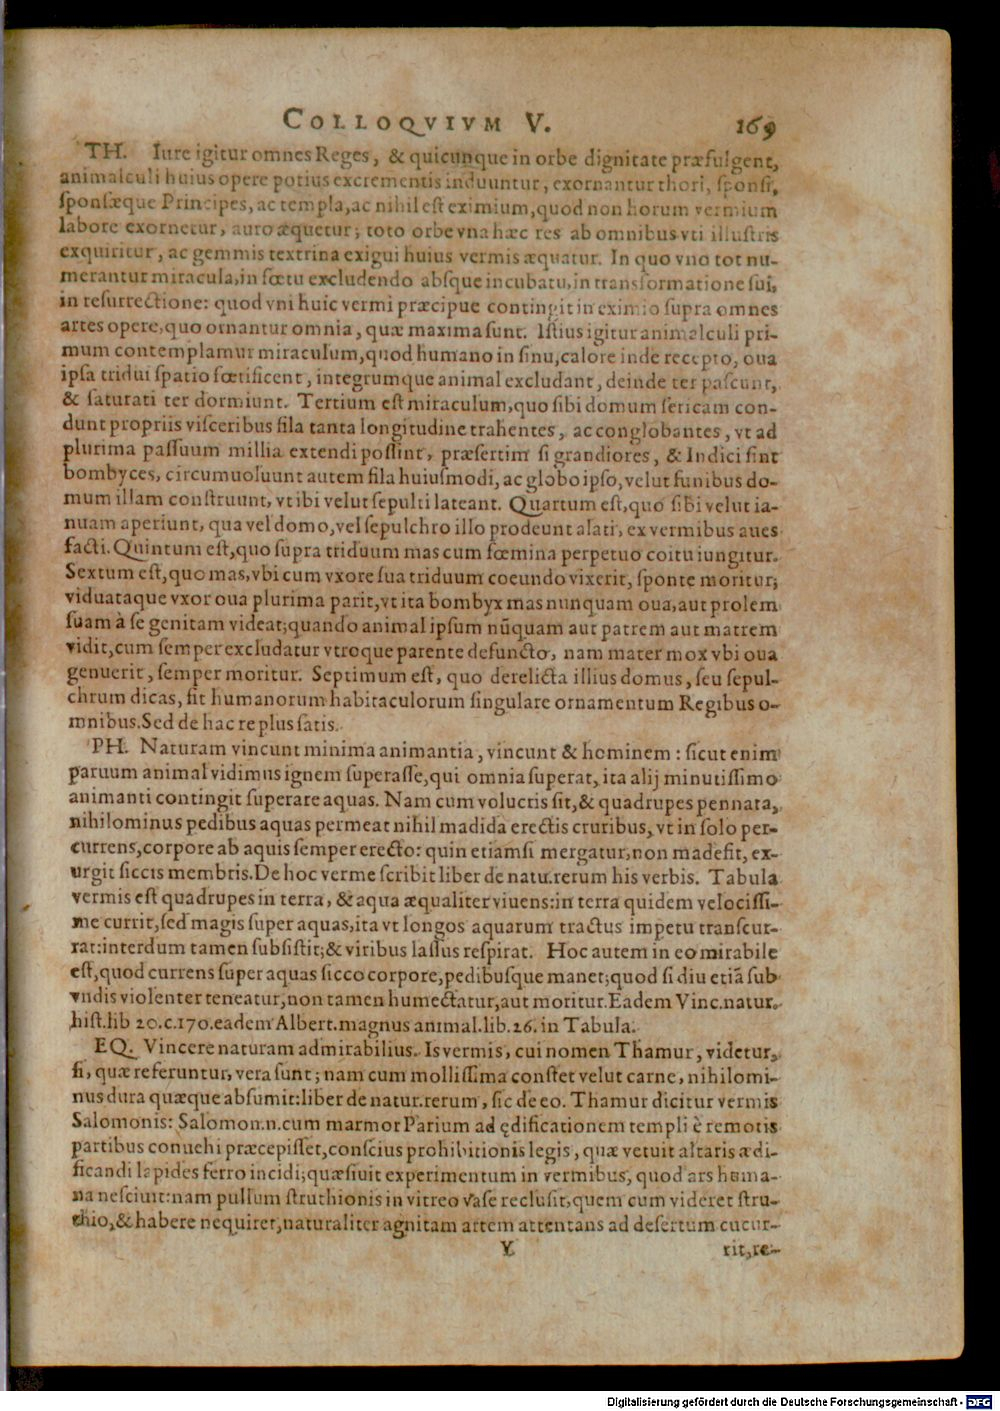 COLLOQVIVM V. 169
TH. Iure igitur omnes Reges, & quicunque in orbe dignitate præfulgent,
animalculi huius opere potius excrementis induuntur, exornantur thori, sponsi,
sponsæque Principes, ac templa, ac nihil est eximium, quod non horum vermium
labore exornetur, auro æquetur; toto orbe vna hæc res ab omnibus vti illustris
exquiritur, ac gemmis textrina exigui huius vermis æquatur. In quo vno tot nu-
merantur miracula, in fœtu excludendo absque incubatu, in transformatione sui,
in resurrectione: quod vni huic vermi præcipue contingit in eximio supra omnes
artes opere, quo ornantur omnia, quæ maxima sunt. Istius igitur animalculi pri-
mum contemplamur miraculum, quod humano in sinu, calore inde recepto, oua
ipsa tridui spatio fœtificent, integrumque animal excludant, deinde ter pascunt,
& saturati ter dormiunt. Tertium est miraculum, quo sibi domum sericam con-
dunt propriis visceribus fila tanta longitudine trahentes, ac conglobantes, vt ad
plurima passuum millia extendi possint, præsertim si grandiores, & Indici sint
bombyces, circumuoluunt autem fila huiusmodi, ac globo ipso, velut funibus do-
mum illam construunt, vt ibi velut sepulti lateant. Quartum est, quo sibi velut ia-
nuam aperiunt, qua vel domo, vel sepulchro illo prodeunt alati, ex vermibus aues
facti. Quintum est, quo supra triduum mas cum fœmina perpetuo coitu iungitur.
Sextum est, quo mas, vbi cum vxore sua triduum coeundo vixerit, sponte moritur;
viduataque vxor oua plurima parit, vt ita bombyx mas nunquam oua, aut prolem
suam à se genitam videat; quando animal ipsum nũquam aut patrem aut matrem
vidit, cum semper excludatur vtroque parente defuncto, nam mater mox vbi oua
genuerit, semper moritur. Septimum est, quo derelicta illius domus, seu sepul-
chrum dicas, fit humanorum habitaculorum singulare ornamentum Regibus o-
mnibus. Sed de hac re plus satis.
PH. Naturam vincunt minima animantia, vincunt & hominem: sicut enim
paruum animal vidimus ignem superasse, qui omnia superat, ita alij minutissimo
animanti contingit superare aquas. Nam cum volucris sit, & quadrupes pennata,
nihilominus pedibus aquas permeat nihil madida erectis cruribus, vt in solo per-
currens, corpore ab aquis semper erecto: quin etiamsi mergatur, non madefit, ex-
urgit siccis membris. De hoc verme scribit liber de natu. rerum his verbis. Tabula
vermis est quadrupes in terra, & aqua æqualiter viuens: in terra quidem velocissi-
me currit, sed magis super aquas, ita vt longos aquarum tractus impetu transcur-
rat: interdum tamen subsistit; & viribus lassus respirat. Hoc autem in eo mirabile
est, quod currens super aquas sicco corpore, pedibusque manet; quod si diu etiã sub
vndis violenter teneatur, non tamen humectatur, aut moritur. Eadem Vinc. natur.
hist. lib 20. c. 170. eadem Albert. magnus animal. lib. 26. in Tabula.
EQ. Vincere naturam admirabilius. Is vermis, cui nomen Thamur, videtur,
si, quæ referuntur, vera sunt; nam cum mollissima constet velut carne, nihilomi-
nus dura quæque absumit: liber de natur. rerum, sic de eo. Thamur dicitur vermis
Salomonis: Salomon. n. cum marmor Parium ad ędificationem templi è remotis
partibus conuehi præcepisset, conscius prohibitionis legis, quæ vetuit altaris ædi-
ficandi lapides ferro incidi; quæsiuit experimentum in vermibus, quod ars huma-
na nesciuit: nam pullum struthionis in vitreo vase reclusit, quem cum videret stru-
thio, & habere nequiret, naturaliter agnitam artem attentans ad desertum cucur-
Y rit, re-
Digitalisierung gefördert durch die Deutsche Forschungsgemeinschaft - DFG